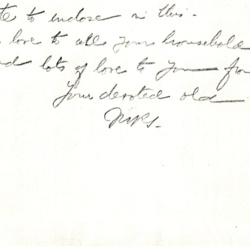 to enclose in this.
love to all your household
lots of love to you from
Your devoted old